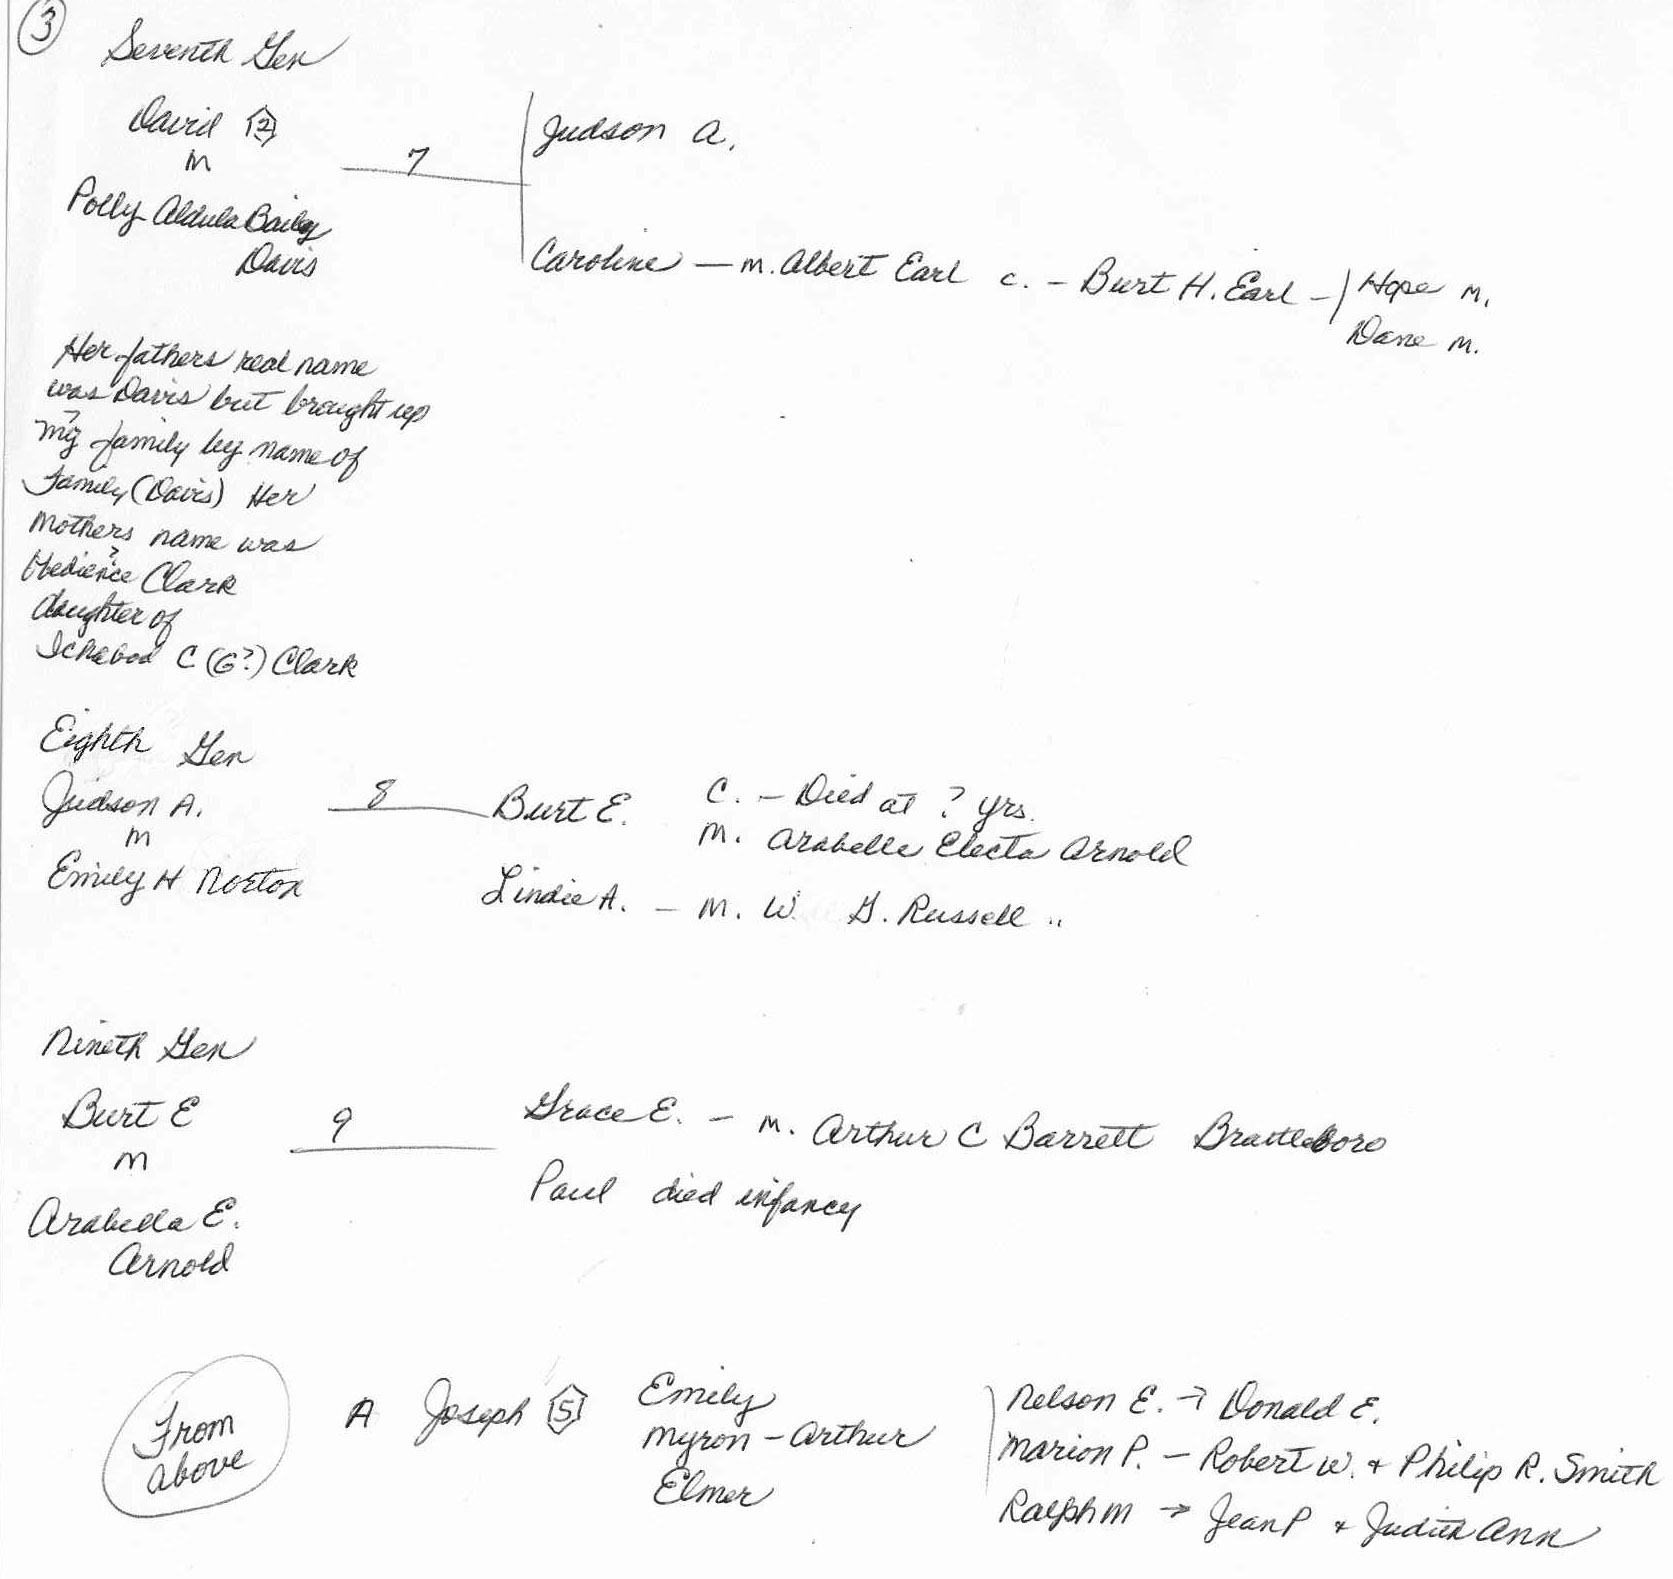 3
Seventh Gen
David 2
m
Polly Aldula Baily
Davis
7
Judson A.
Caroline — m. Albert Earl c. – Burt H. Earl – Hope m.
Dane m.
Her fathers real name
was Davis but brought up
?
my family by name of
Family (Davis) Her
mothers name was
?
Obedience Clark
daughter of
Ichabod C (G?) Clark
Eighth Gen
Judson A.
m
Emily H Norton
8
Burt E. C. – Died at ? yrs.
m. Arabelle Electa Arnold
Lindie A. – m. W. G. Russell ..
Nineth Gen
Burt E
m
Arabella E.
Arnold
9
Grace E. – m. Arthur C Barrett Brattleboro
Paul died infancy
From
above
A Joseph 5
Emily
Myron – Arthur
Elmer
Nelson E. → Donald E.
Marion P. – Robert W. + Philip R. Smith
Ralph M → Jean P + Judith Ann